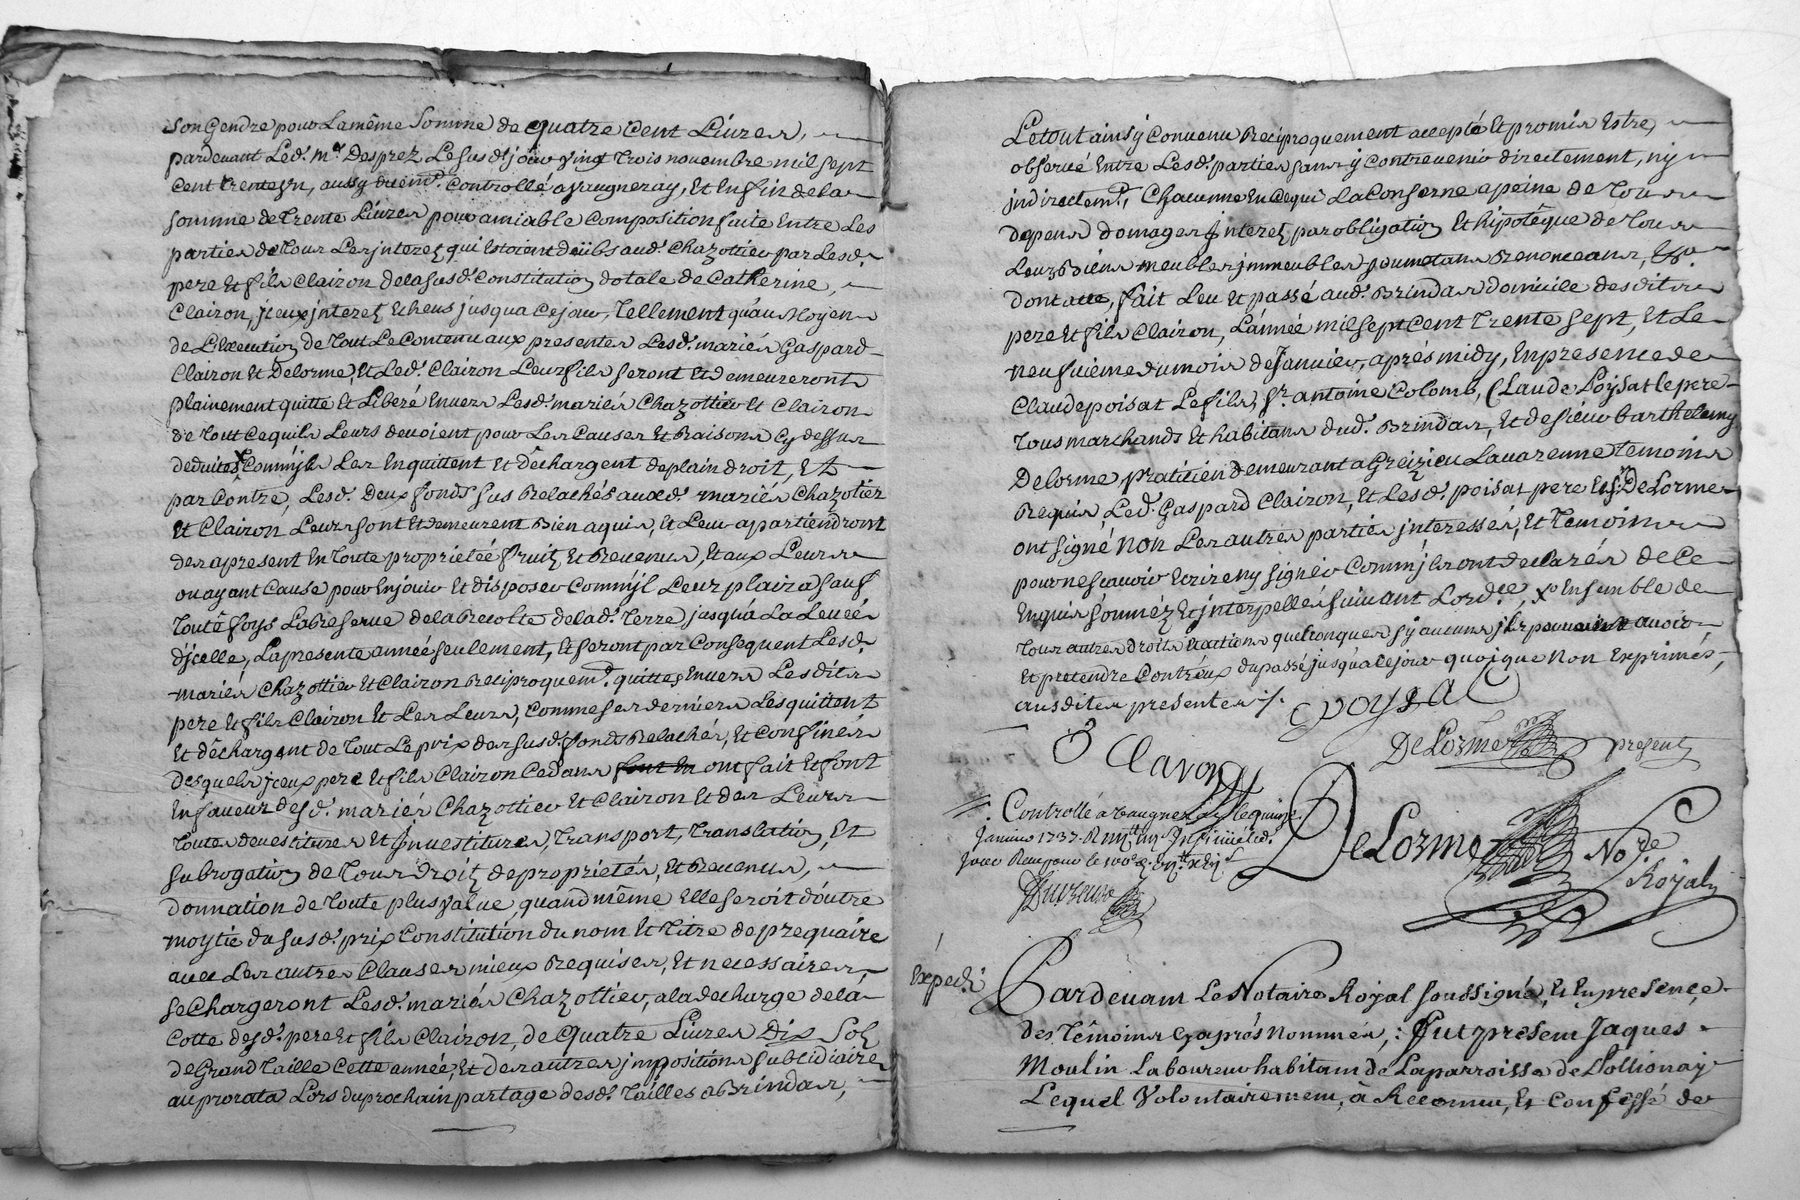 son Gendre pour La même Somme de quatre Cent Livres,
pardevant Led. Me. Desprez Le susd. jour vingt trois novembre mil sept
Cent trente un, aussy duem. Controllé a Vaugneray, Et Enfin de la
somme de trente Livres pour amiable Composition faite Entre Les
parties de tous Les jnterez qui Estoient dûbs aud. Chazottier par Lesd.
pere Et fils Clairon de la susd. Constitution dotale de Catherine,
Clairon, jceux jnterez Echeus jusqua Ce jour, tellement qu'au Moyen
de L'Execution de tout Le Contenu aux presentes Lesd. mariés Gaspard
Clairon Et Delorme, Et Led. Clairon Leur fils seront Et demeureront
plainement quitte Et Liberé Envers Lesd. mariés Chazottier Et Clairon
de tout Ce quils Leurs devoient pour Les Causes Et Raisons Cy dessus
deduites x Comm'jls Les Enquittent Et déchargent de plain droit, Et
par Contre, Lesd. Deux fonds sus Relachés auxd. mariés Chazotier
Et Clairon Leurs sont Et demeurent Bien aquis, Et Leur apartiendront
des apresent En toute proprieteé fruitz Et Revenus, Et aux Leurs
ou ayant Cause pour Enjouir Et disposer Comm'jl Leur plaira sauf
toute foys La Reserve de la Recolte de lad. terre, jusqu'a La Leveé
d'jcelle, La presente année seulement, Et seront par Consequent Lesd.
mariés Chazottier Et Clairon Reciproquemt. quittes Envers Lesdits
pere Et fils Clairon Et Les Leurs, Comme ses derniers Les quittent
Et déchargent de tout Le prix des susd. fonds Relachés, Et Confinés
desquels jceux pere Et fils Clairon Cedans font En ont fait Et font
En faveur desd. mariés Chazottier Et Clairon Et des Leurs
toutes devestitures Et Jnvestitures, transport, translation, Et
subrogation de tous droitz de proprietés, Et Revenus,
donnation de toute plus value, quand même Elle seroit d'outre
moytié du susd. prix Constitution du nom Et titre de prequaire
avec Les autres Clauses mieux Requises, Et necessaires,
se Chargeront Lesd. mariés Chazottier, a la decharge de la
Cotte desd. pere Et fils Clairon, de Quatre Livres Dix Solz
de Grand taille Cette année, Et des autres jmpositions subsidiaire
au prorata Lors du prochain partage desd. tailles a Brindas,
Le tout ainsy Convenu Reciproquement accepté Et promis Estre,
observé Entre Lesd. parties sans y Contrevenir directement, ny
jndirectemt. Chacunne En Ce qui La Conserne a peine de tous
depens domages Jnterez par obligation Et hipotêque de tous
Leurs Biens meubles jmmeubles soumetans Renonceans, &ca.
dont acte, fait Leu Et passé aud. Brindas domicile desdits
pere Et fils Clairon, L'année mil sept Cent trente sept, Et Le
neufuième du mois de Janvier, aprés midy, En presence de
Claude poisat Le fils, Sr. antoine Colomb, Claude Poysat le pere
tous marchands Et habitans dud. Brindas, Et de sieur barthelemy
Delorme, praticien demeurant a Greizieu Lavarenne temoins
Requis, Led. Gaspard Clairon, Et Lesd. poisat pere Et Sr. Delorme
ont signé non Les autres parties jnteressés, Et temoins
pour ne scavoir Ecrire ny signer Comm'jls ont declarés de Ce
Enquis sommés Et jnterpellés suivant Lord.ce, x Ensemble de
tous autres droits Et actions quelconques s'y aucuns jls pouvoient avoir
Et pretendre Contr'eux du passé jusqu'a Ce jour quoique non Exprimés,
ausdites presentes ./.
C poysat
G Clairon
DeLorme present
Controllé a Vaugneray le quinze
Janvier 1737.
DeLorme No.re
Royal
Expedié
Pardevant Le Notaire Royal soussigné, Et En presence
des Témoins Cy aprés nommés, : fut present Jaques
Moulin Laboureur habitant de La parroisse de Pollionay
Lequel Volontairement, à Reconnu, Et Confessé de